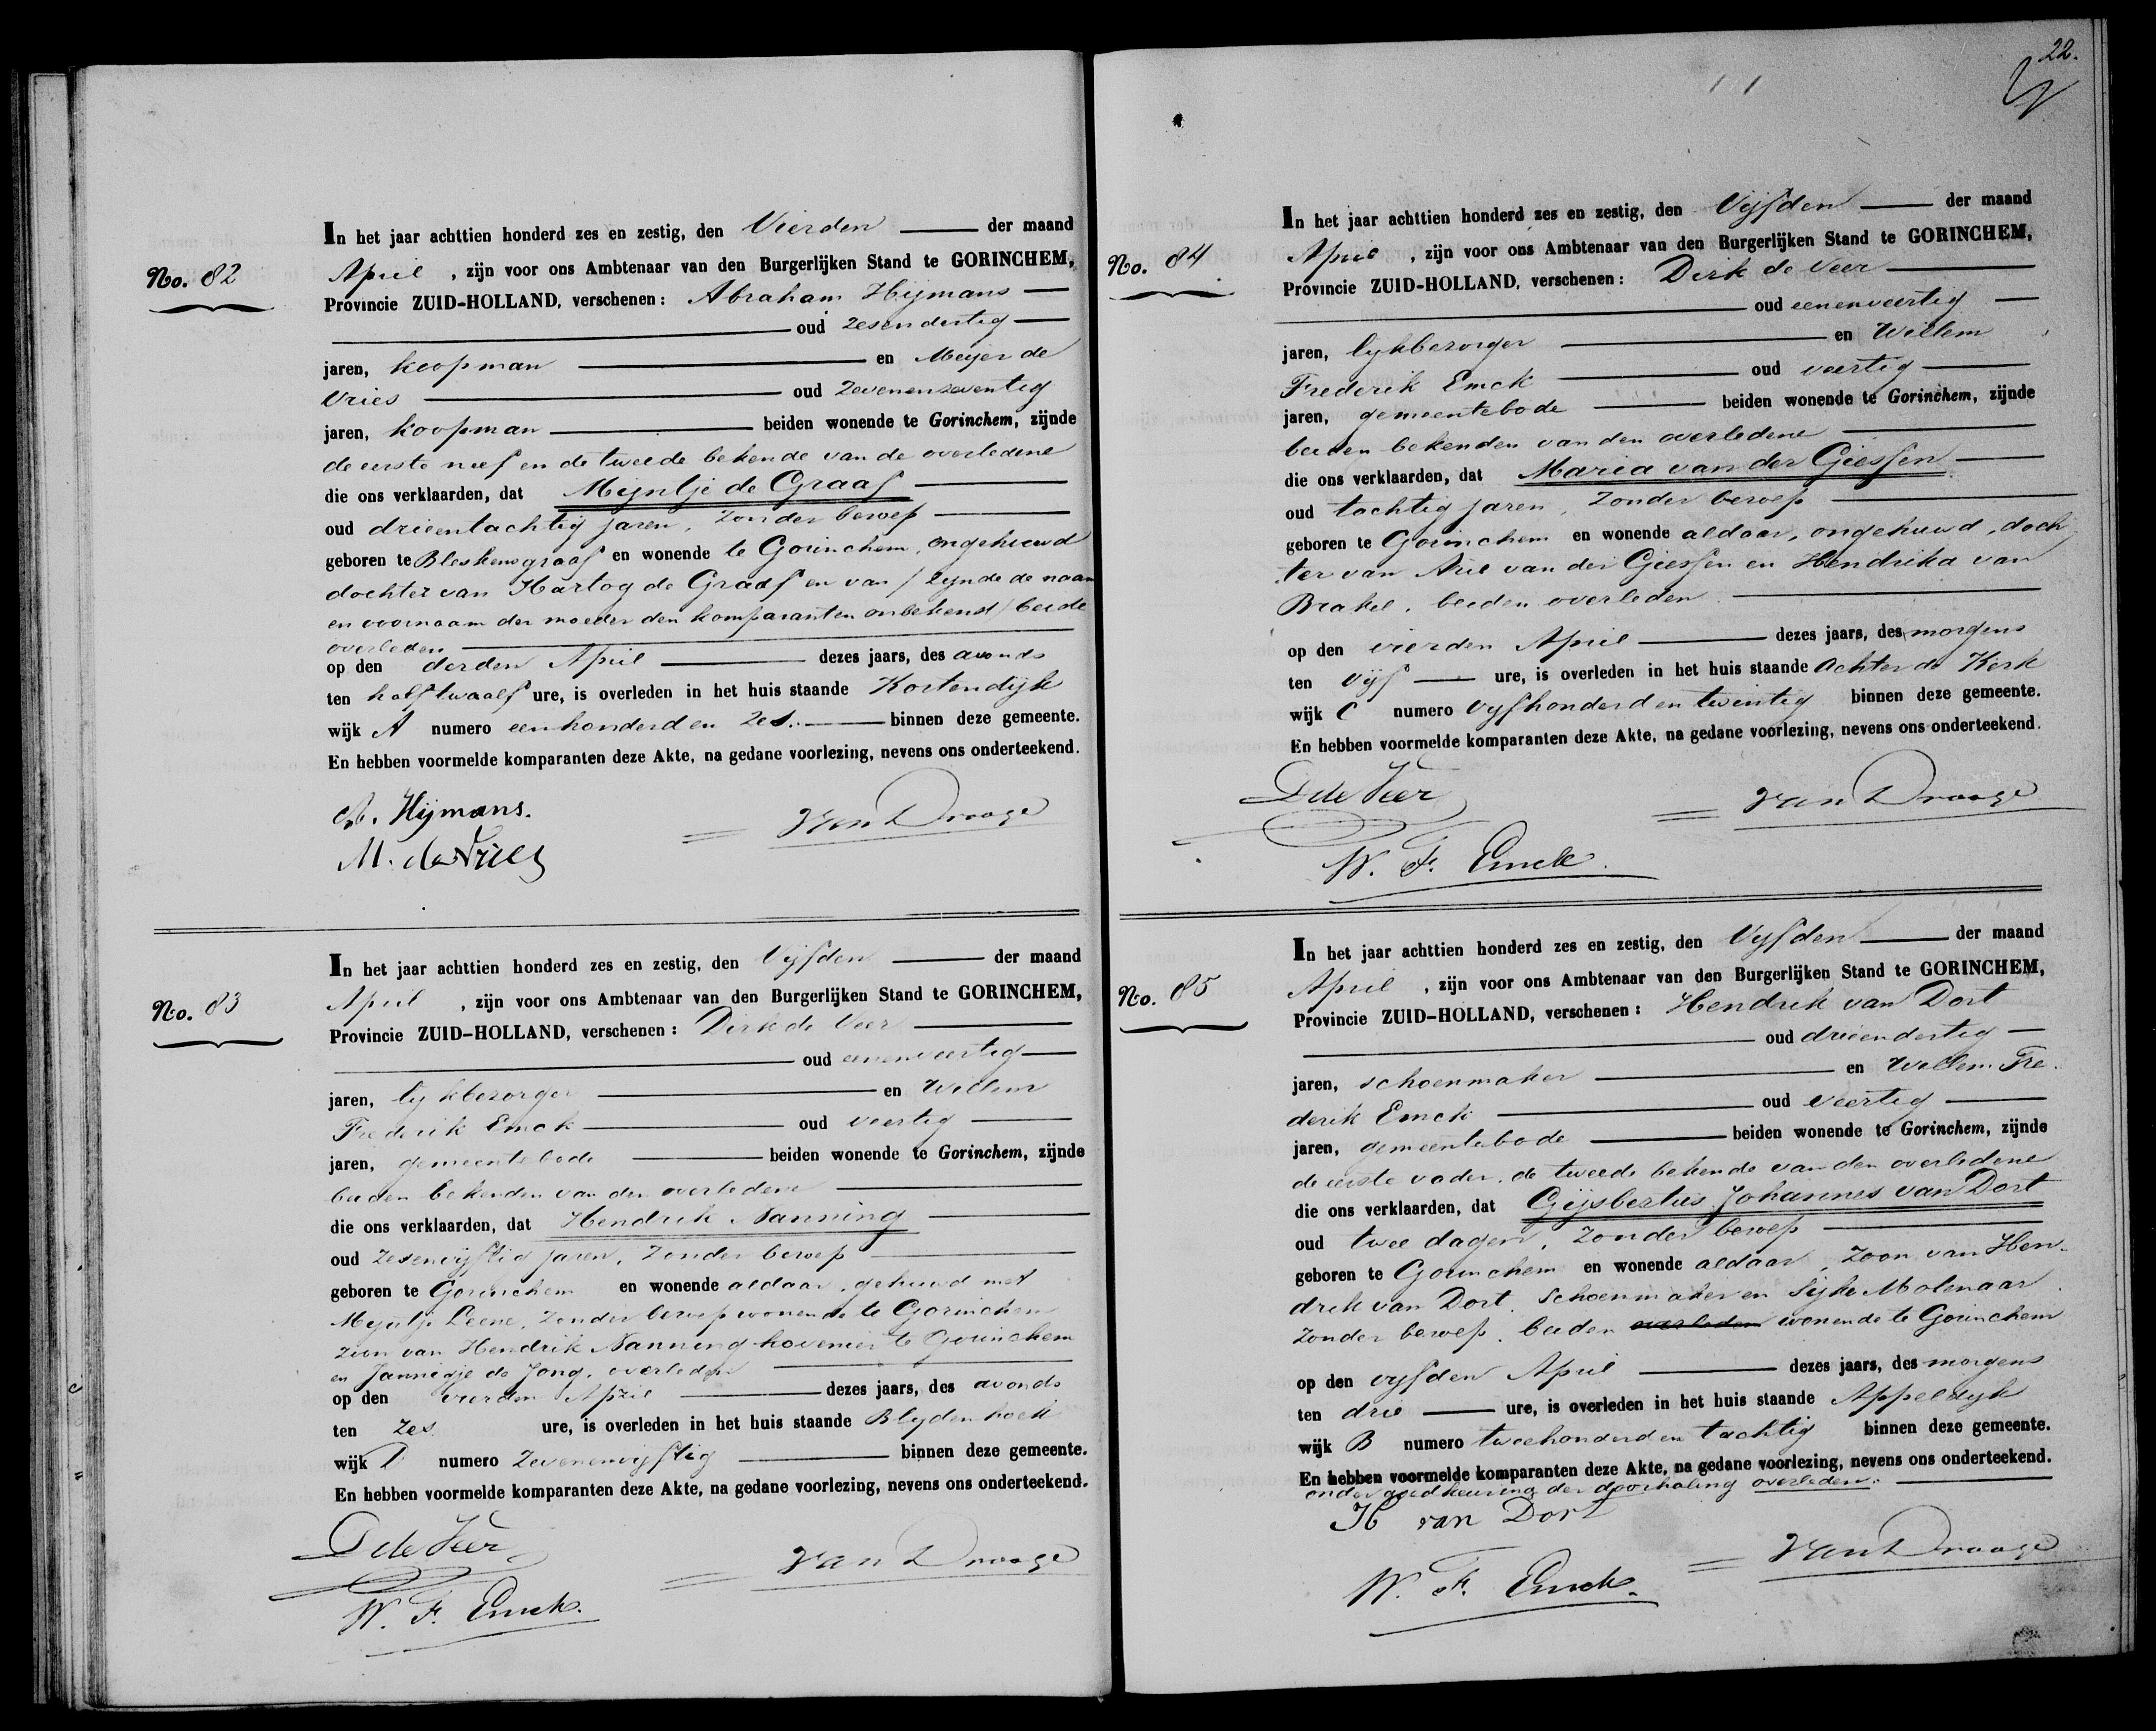 No. 82
In het jaar achttien honderd zes en zestig, den Vierden der maand
April , zijn voor ons Ambtenaar van den Burgerlijken Stand te GORINCHEM,
Provincie ZUID-HOLLAND, verschenen: Abraham Hijmans
oud zesendertig
jaren, koopman en Meijer de
Vries oud zevenenzeventig
jaren, koopman beiden wonende te Gorinchem, zijnde
de eerste neef en de tweede bekende van de overledene
die ons verklaarden, dat Mijntje de Graaf
oud drieentachtig jaren, zonder beroep
geboren te Bleskensgraaf en wonende te Gorinchem, ongehuwd
dochter van Hartog de Graaf en van / zijnde de naam
en voornaam der moeder den komparanten onbekend / beide
overleden
op den derden April dezes jaars, des avonds
ten half twaalf ure, is overleden in het huis staande Kortendijk
wijk A numero eenhonderd en zes. binnen deze gemeente.
En hebben voormelde komparanten deze Akte, na gedane voorlezing, nevens ons onderteekend.
A. Hijmans.
van Drooge
M. de Vries
No. 83
In het jaar achttien honderd zes en zestig, den Vijfden der maand
April , zijn voor ons Ambtenaar van den Burgerlijken Stand te GORINCHEM,
Provincie ZUID-HOLLAND, verschenen: Dirk de Veer
oud eenenveertig
jaren, lykbezorger en Willem
Frederik Emck oud veertig
jaren, gemeentebode beiden wonende te Gorinchem, zijnde
beiden bekenden van den overledene
die ons verklaarden, dat Hendrik Nanning
oud zesenvijftig jaren, zonder beroep
geboren te Gorinchem en wonende aldaar, gehuwd met
Leene, zonder beroep wonende te Gorinchem
zoon van Hendrik Nanning hovenier te Gorinchem
en Jannigje de Jong, overleden
op den vierden April dezes jaars, des avonds
ten zes ure, is overleden in het huis staande Blydenhoek
wijk D numero zevenenvijftig binnen deze gemeente.
En hebben voormelde komparanten deze Akte, na gedane voorlezing, nevens ons onderteekend.
D de Veer
van Drooge
W. F. Emck.
22.
No. 84
In het jaar achttien honderd zes en zestig, den Vijfden der maand
April , zijn voor ons Ambtenaar van den Burgerlijken Stand te GORINCHEM,
Provincie ZUID-HOLLAND, verschenen: Dirk de Veer
oud eenenveertig
jaren, lykbezorger en Willem
Frederik Emck oud veertig
jaren, gemeentebode beiden wonende te Gorinchem, zijnde
beiden bekenden van den overledene
die ons verklaarden, dat Maria van der Giessen
oud tachtig jaren, zonder beroep
geboren te Gorinchem en wonende aldaar, ongehuwd, doch
ter van Arie van der Giessen en Hendrika van
Brakel, beiden overleden
op den vierden April dezes jaars, des morgens
ten vijf ure, is overleden in het huis staande Achter de Kerk
wijk C numero vyfhonderd en twintig binnen deze gemeente.
En hebben voormelde komparanten deze Akte, na gedane voorlezing, nevens ons onderteekend.
D de Veer
van Drooge
W. F. Emck.
No. 85
In het jaar achttien honderd zes en zestig, den Vyfden der maand
April , zijn voor ons Ambtenaar van den Burgerlijken Stand te GORINCHEM,
Provincie ZUID-HOLLAND, verschenen: Hendrik van Dort
oud drieendertig
jaren, schoenmaker en Willem Fre
derik Emck oud veertig
jaren, gemeentebode beiden wonende te Gorinchem, zijnde
de eerste vader, de tweede bekende van den overledene
die ons verklaarden, dat Gijsbertus Johannes van Dort
oud twee dagen, zonder beroep
geboren te Gorinchem en wonende aldaar, zoon van Hen
drik van Dort, schoenmaker en Sijke Molenaar
zonder beroep, beiden overleden wonende te Gorinchem
op den vyfden April dezes jaars, des morgens
ten drie ure, is overleden in het huis staande Appeldyk
wijk B numero tweehonderd en tachtig binnen deze gemeente.
En hebben voormelde komparanten deze Akte, na gedane voorlezing, nevens ons onderteekend.
onder goedkeuring der doorhaling overleden.
H van Dort
van Drooge
W. F. Emck.